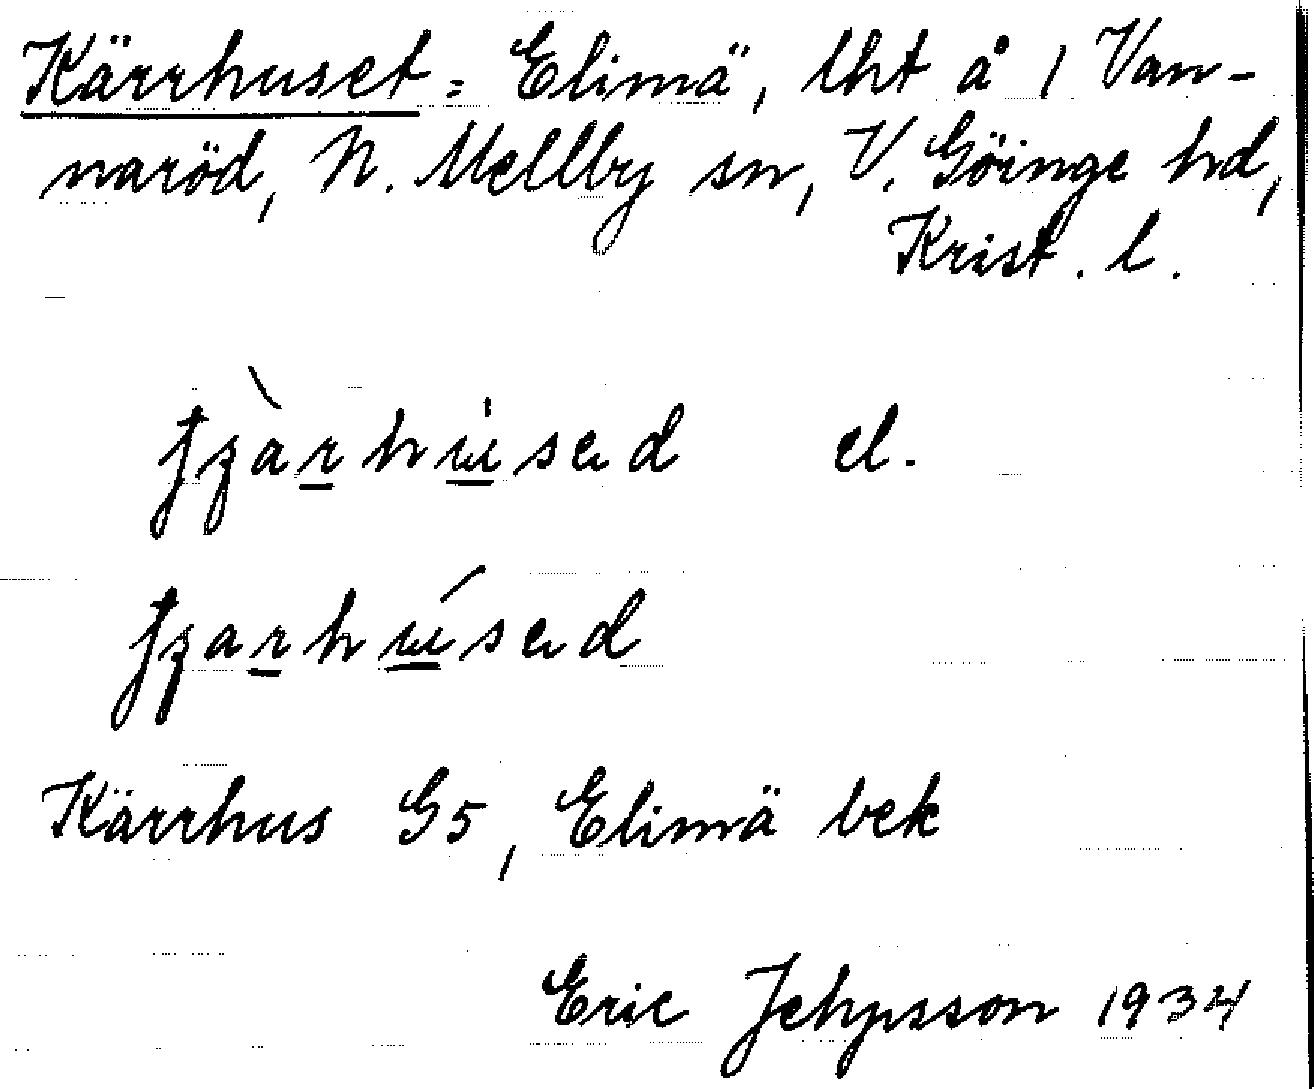 Kärrhuset = Elimä, lht å 1 Van-
naröd, N. Mellby sn, V. Göinge hd,
Krist. l.
el.
Kärrhus G5, Elimä bek
Eric Jehpsson 1934